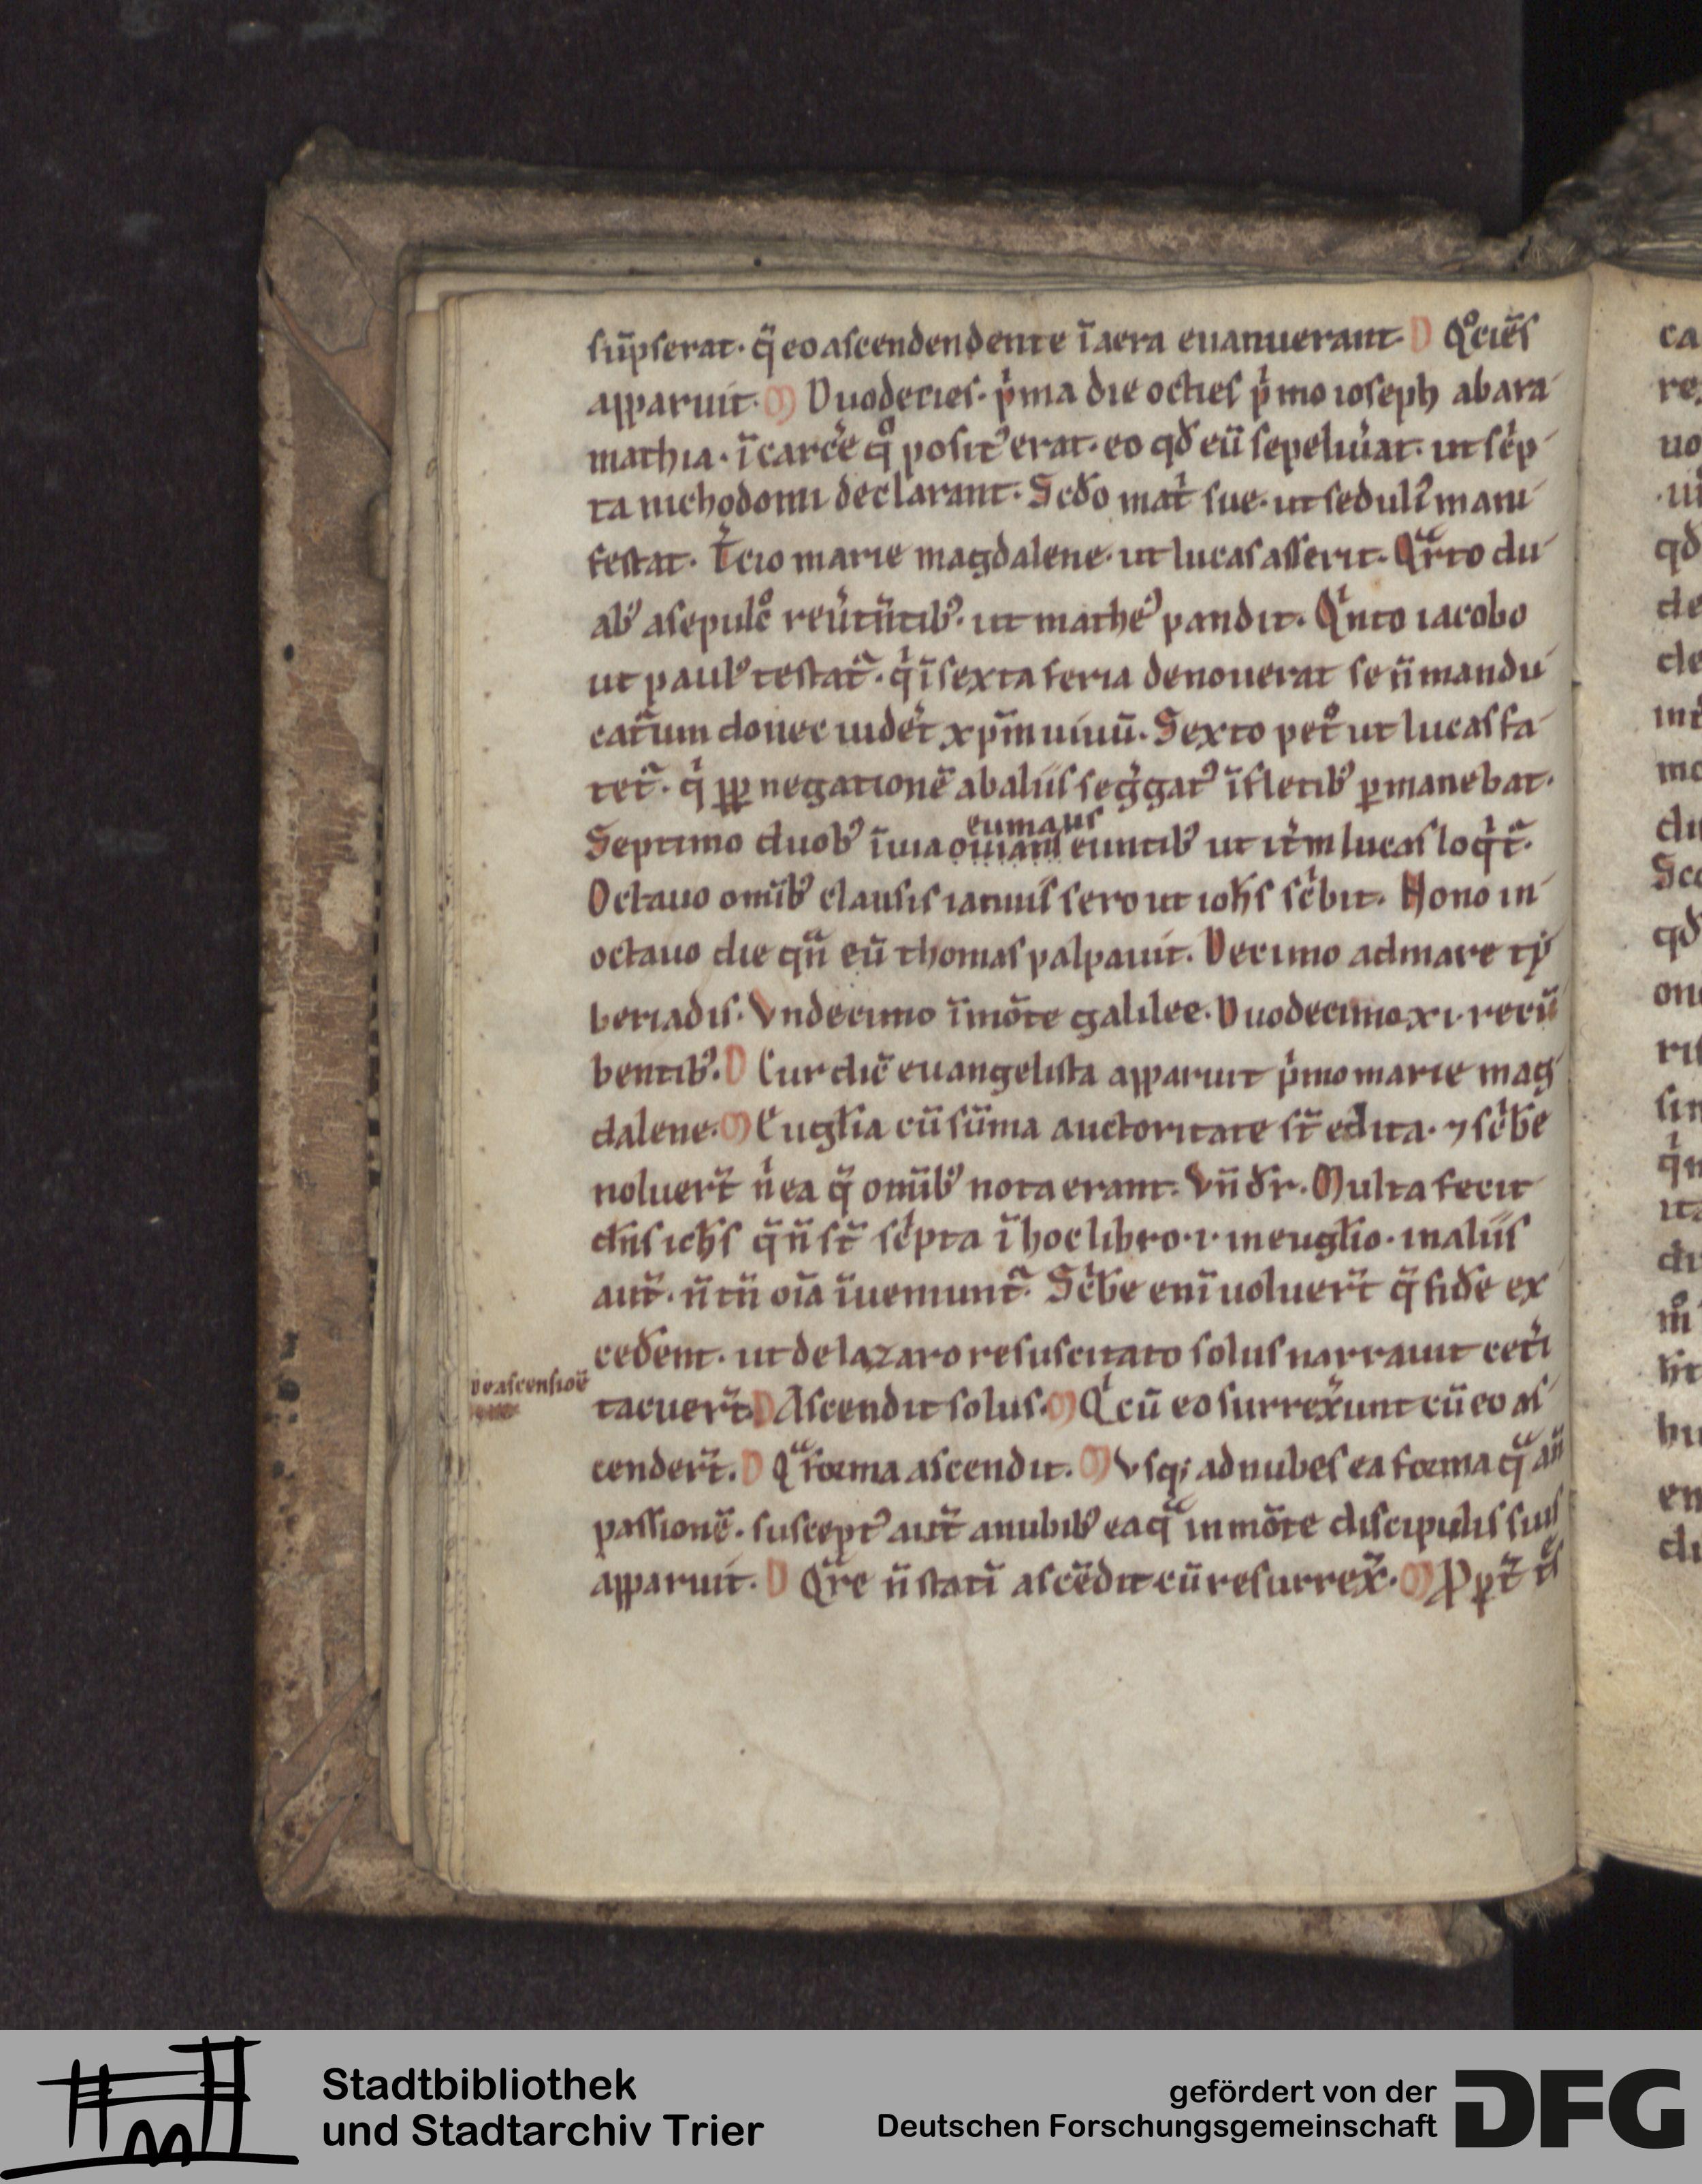 sūpserat. q̄ eo ascendendente ī aera euanuerant. D Qͦciēs
apparuit. M Duodecies. pͥma die octies pͥmo ioseph abara
mathia. ī carc̄e qͦ posit᾽ erat. eo qđ eū sepeliu̓at. ut sc̓p
ta nichodomi declarant. Scđo mat̓ sue. ut seduli᾽ mani
festat. T̓cio marie magdalene. ut lucas asserit. Qᵃrto du
ab᾽ a sepulcͦ reu̓tūtib᾽. ut mathe᾽ pandit. Qͥnto iacobo
ut paul᾽ testat̄. qͥ ī sexta feria deuouerat se n̄ mandu
cat̄um donec uidet̓ xp̄m uiuū. Sexto petͦ ut lucas fa
tet̄. qͥ ꝓp negationē ab aliis seg̓gat᾽ ī fletib᾽ ꝑmanebat.
eumaus
Septimo duob᾽ ī uia euntib᾽ ut it̓m lucas loqͥt̄.
Octauo omīb᾽ clausis ianuis sero ut ioh̄s scͥbit. Nono in
octauo die qn̄ eū thomas palpauit. Decimo ad mare ty
beriadis. Vndecimo ī mōte galilee. Duodecimo xi. recū
bentib᾽. D Cur dic̄ euangelista apparuit pͥmo marie mag
dalene. M Eugl̄ia cū sūma auctoritate st̄ edita. ⁊ scͥbe
noluer̄t nͥ ea q̄ omīb᾽ nota erant. Vn̄ đr. Multa fecit
dn̄s ich̄s q̄ n̄ st̄ scͥpta ī hoc libro .i. in eugl̄io. in aliis
aut̄. n̄ tn̄ oīa īueniunt̄. Scͥbe enī uoluer̄t q̄ fiđe ex
ceđent. ut de lazaro resuscitato solus narrauit cet̓i
De ascensiōe
tacuer̄t. D Ascendit solus. M Qͥ cū eo surrex̓unt cū eo as
cender̄t. D Qᵃ forma ascendit. M Vsq; ad nubes ea forma qᵃ an̄
passionē. suscept᾽ aut̄ a nubib᾽ ea qᵃ in mōte discipulis suis
apparuit. D Qᵃre n̄ statī ascēdit cū resurrex̄. M Ꝓpt̄
ca
re
uo
qđ
de
mo
du
Scd
qđ
on
ri
sin
qͥn
ita
hu
en
du
Stadtbibliothek
und Stadtarchiv Trier
gefördert von der
Deutschen Forschungsgemeinschaft
DFG